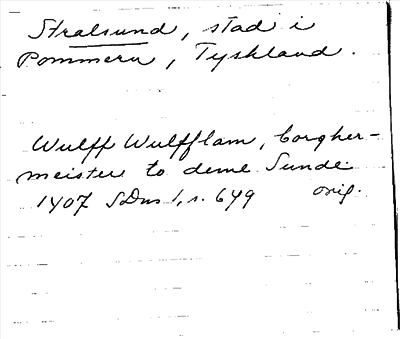 Stralsund, stad i
Pommern, Tyskland.
Wulff Wulfflam, borgher-
meister to deme Sunde
1407 SDns 1, s. 649 orig.